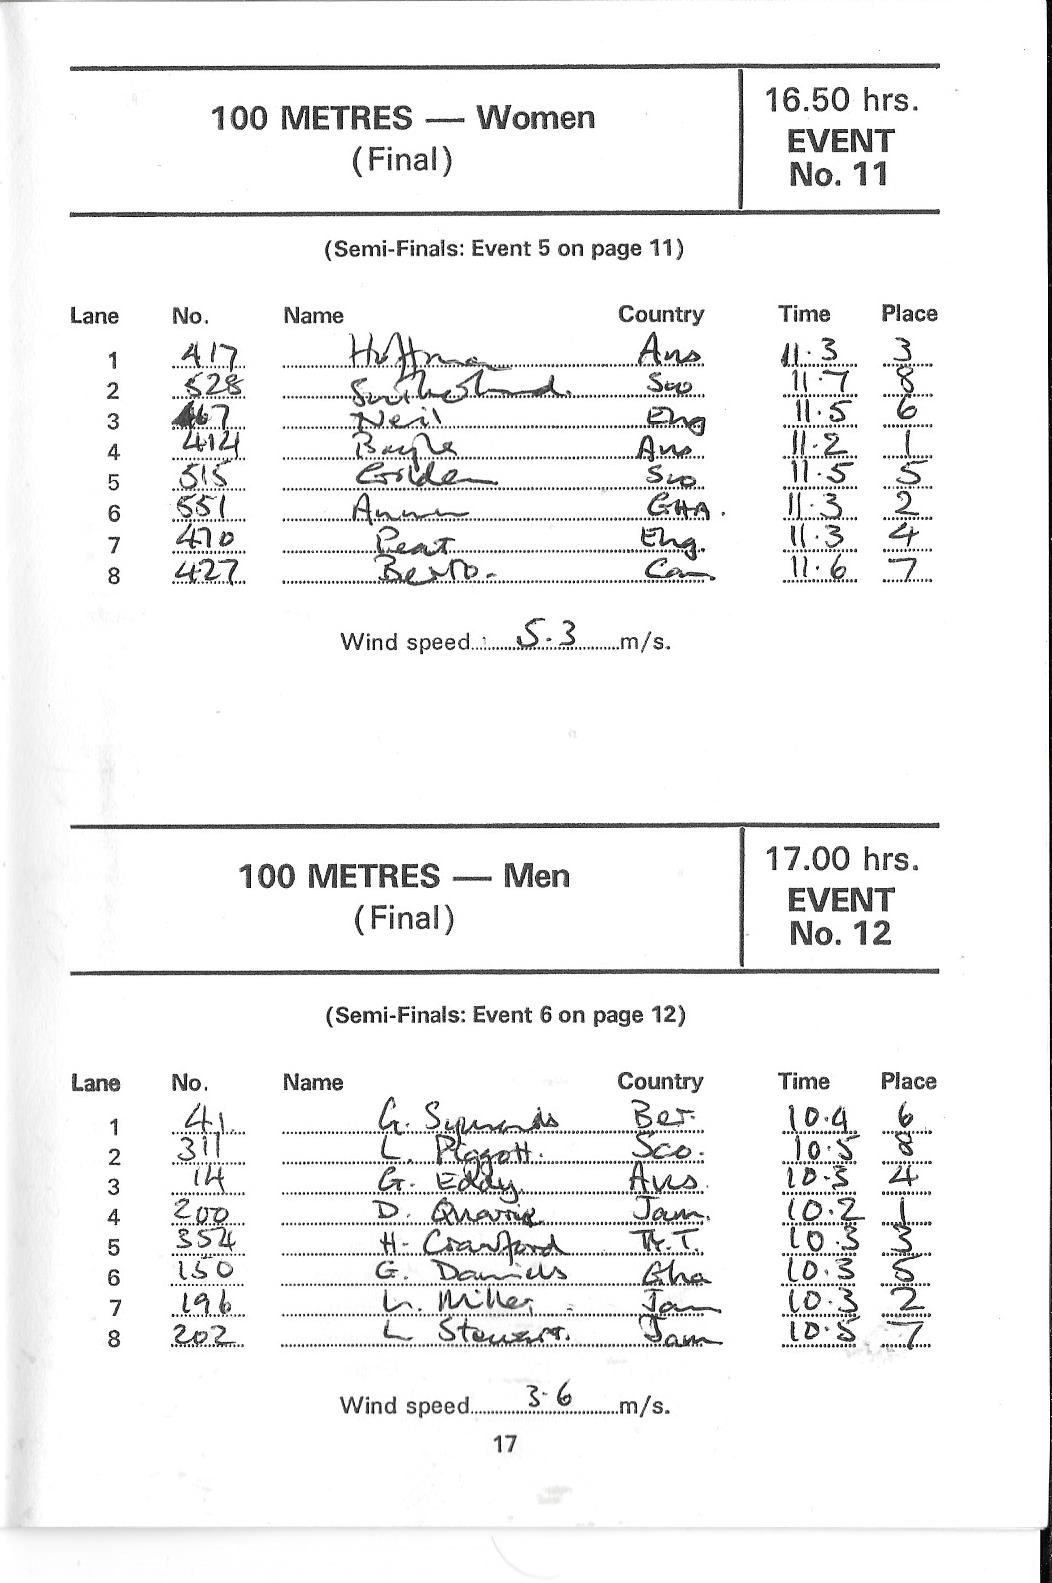 100 METRES — Women
(Final)
16.50 hrs.
EVENT
No. 11
(Semi-Finals: Event 5 on page 11)
Lane No. Name Country Time Place
1 417 Hoffman Aus 11.3 3
2 528 Sutherland. Sco 11.7 8
3 467 Neil Eng 11.5 6
4 414 Boyle Aus 11.2 1
5 515 Golden Sco 11.5 5
6 551 Annum GHA. 11.3 2
7 470 Peat Eng. 11.3 4
8 427 Berto. Can 11.6 7
Wind speed 5.3 m/s.
100 METRES — Men
(Final)
17.00 hrs.
EVENT
No. 12
(Semi-Finals: Event 6 on page 12)
Lane No. Name Country Time Place
1 41 G. Symonds Ber. 10.4 6
2 311 L. Piggott. Sco. 10.5 8
3 14 G. Eddy Aus. 10.3 4
4 200 D. Quarrie Jam. 10.2 1
5 354 H. Crawford Tr.T. 10.3 3
6 150 G. Daniels Gha 10.3 5
7 196 L. Miller Jam 10.3 2
8 202 L Stewart. Jam 10.5 7
Wind speed 3.6 m/s.
17